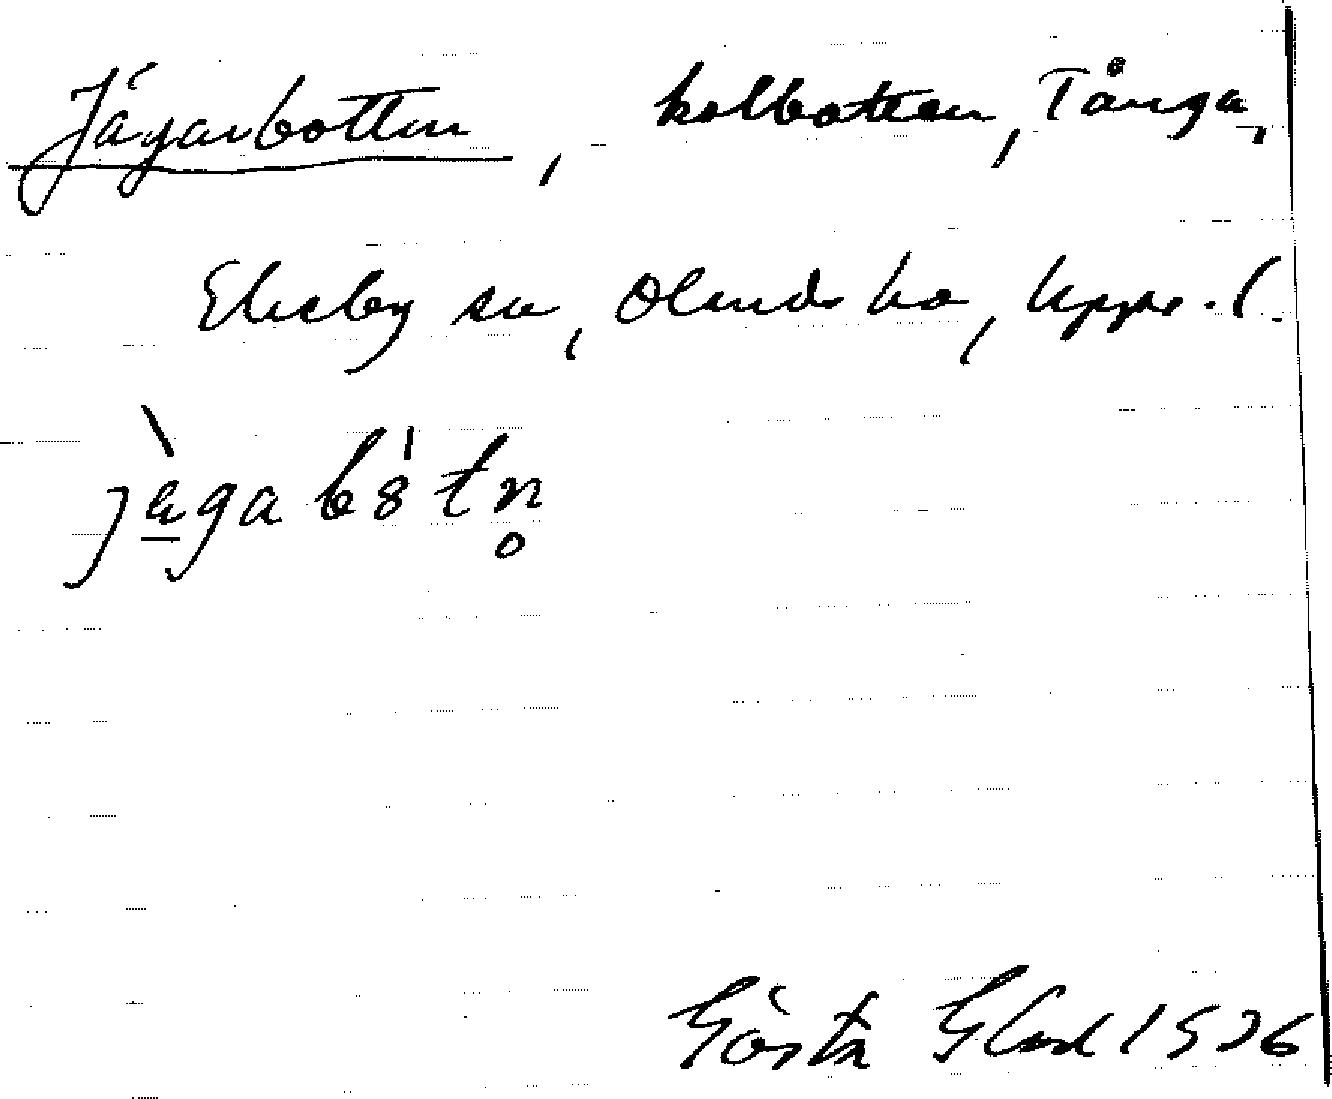 Jägarbotten, kolbotten, Tånga,
Ekeby sn, Olands hd, Uppl.
jägabȯtn̥
Gösta Glad 1936